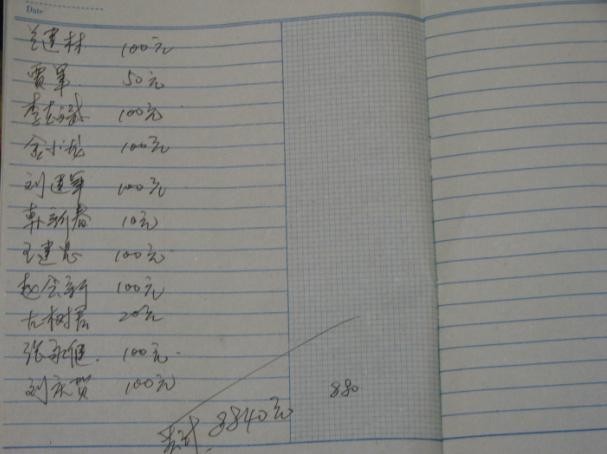 Date
建林 100元
贾军 50元
李 100元
金小龙 100元
刘建军 100元
新春 10元
王建忠 100元
赵金新 100元
树君 20元
张永恒. 100元
刘庆贺 100元
880
共计 8840元